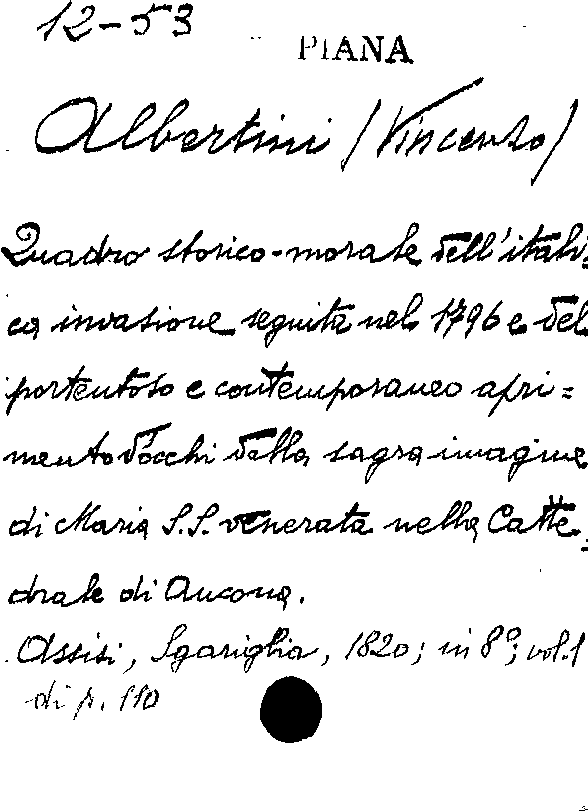 12-53
PIANA
Albertini (Vincenzo)
Quadro storico-morale dell'itali=
ca invasione seguita nel 1796 e del
portentoso e contemporaneo apri=
mento d'occhi della sagra imagine
di Maria S.S. venerata nella Catte=
drale di Ancona.
Assisi, Sgariglia, 1820; in 8°; vol. 1
di p. 110